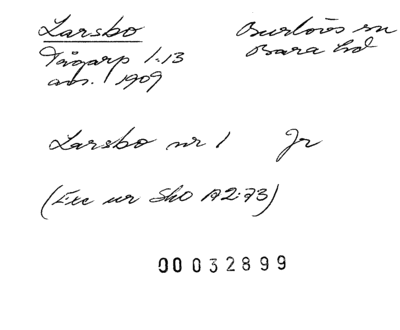 Larsbo
Burlövs sn
Tågarp 1:13
Bara hd
avs. 1909
Larsbo nr 1 Jr
(Exc ur Sko A2:73)
00032899